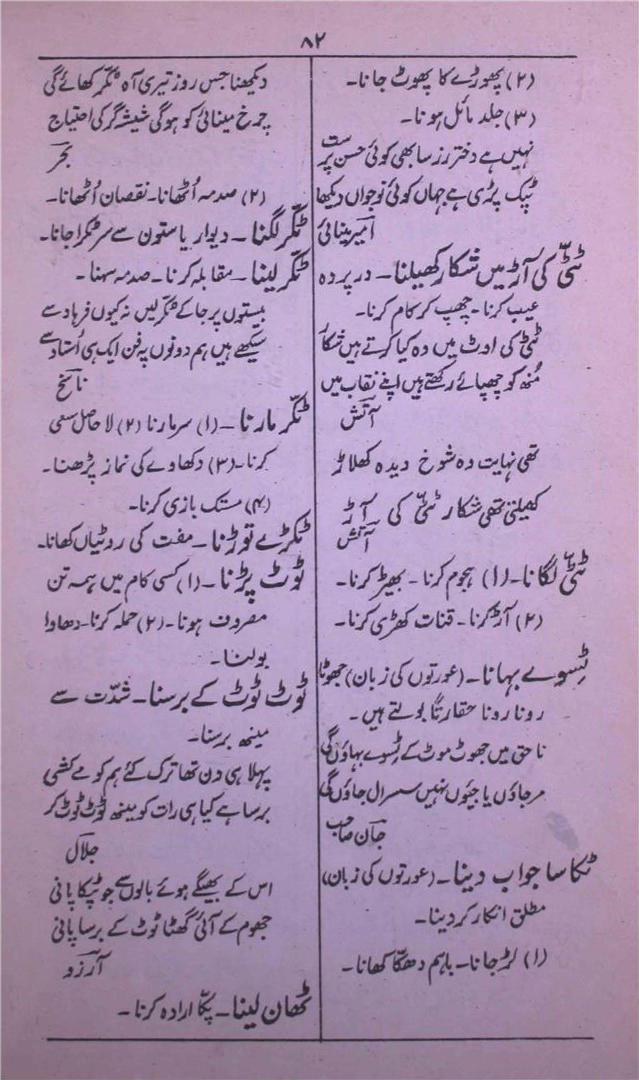 ۸۲
(۲) پھوڑے کا پھوٹ جانا۔
(۳) جلد مائل ہونا۔
نہیں ہے دختر رز سا بھی کوئی حسن پرست
ٹپک پڑی ہے جہاں کوئی نوجواں دیکھا
امیر مینائی
ٹٹی کی آڑ میں شکار کھیلنا۔ در پردہ
عیب کرنا۔ چھپ کر کام کرنا۔
ٹٹی کی اوٹ میں وہ کیا کرتے ہیں شکار
منھ کو چھپائے رکھتے ہیں اپنے نقاب میں
آتش
تھی نہایت وہ شوخ دیدہ کھلاڑ
کھیلتی تھی شکار ٹٹی کی آڑ
آتش
ٹٹی لگانا۔ (۱) ہجوم کرنا۔ بھیڑ کرنا۔
(۲) آڑ کرنا۔ قنات کھڑی کرنا۔
ٹسوے بہانا۔ (عورتوں کی زبان) جھوٹا
رونا رونا حقارتاً بولتے ہیں۔
ناحق میں جھوٹ موٹ کے ٹسوے بہاؤں گی
مر جاؤں یا جیوں نہیں سسرال جاؤں گی
جان صاحب
ٹکا سا جواب دینا۔ (عورتوں کی زبان)
مطلق انکار کر دینا۔
(۱) لڑ جانا۔ باہم دھکا کھانا۔
دیکھنا جس روز تیری آہ ٹکر کھائے گی
چرخ مینائی کو ہوگی شیشہ گر کی احتیاج
بحر
(۲) صدمہ اُٹھانا۔ نقصان اُٹھانا۔
ٹکر لگنا۔ دیوار یا ستون سے سر ٹکرا جانا۔
ٹکر لینا۔ مقابلہ کرنا۔ صدمہ سہنا۔
بیستوں پر جا کے ٹکر لیں نہ کیوں فرہاد سے
سیکھے ہیں ہم دونوں یہ فن ایک ہی اُستاد سے
ناسخ
ٹکر مارنا۔ (۱) سر مارنا (۲) لا حاصل سعی
کرنا۔ (۳) دکھاوے کی نماز پڑھنا۔
(۴) مستک بازی کرنا۔
ٹکڑے توڑنا۔ مفت کی روٹیاں کھانا۔
ٹوٹ پڑنا۔ (۱) کسی کام میں ہمہ تن
مصروف ہونا۔ (۲) حملہ کرنا۔ دھاوا
بولنا۔
ٹوٹ ٹوٹ کے برسنا۔ شدّت سے
مینھ برسنا۔
پہلا ہی دن تھا ترک کئے ہم کو مے کشی
برسا ہے کیا ہی رات کو مینھ ٹوٹ ٹوٹ کر
جلال
اس کے بھیگے ہوئے بالوں سے جو ٹپکا پانی
جھوم کے آئی گھٹا ٹوٹ کے برسا پانی
آرزو
ٹھان لینا۔ پکا ارادہ کرنا۔